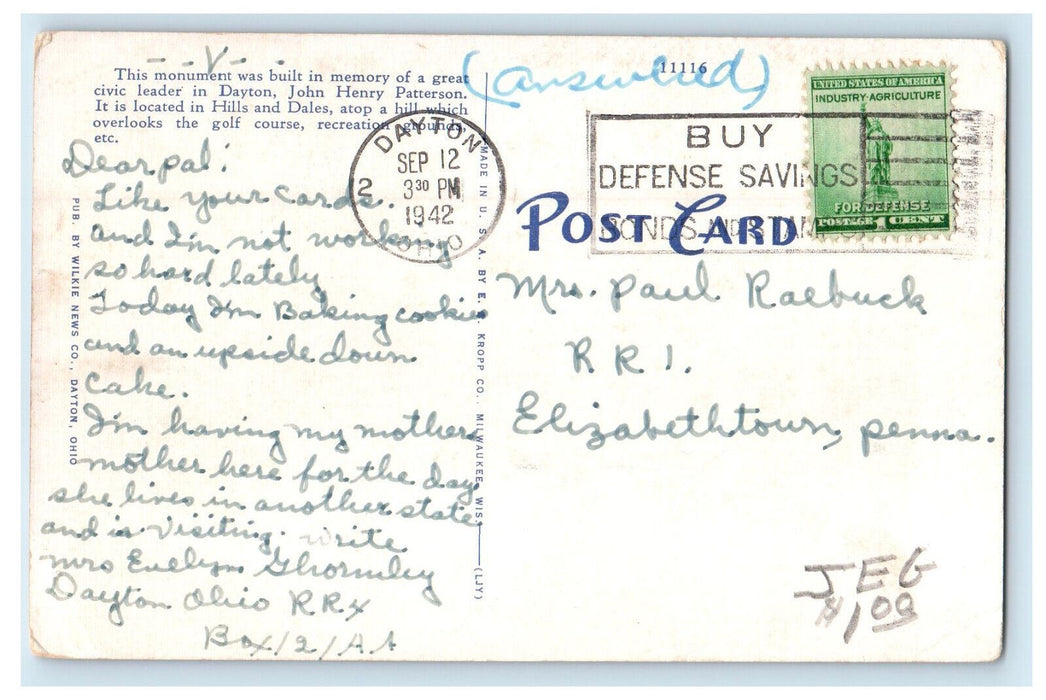 - - V - -
This monument was built in memory of a great
civic leader in Dayton, John Henry Patterson.
It is located in Hills and Dales, atop a hill which
overlooks the golf course, recreation grounds,
etc.
Dear pal:
Like your cards.
and I'm not working
so hard lately
Today I'm Baking cookies
and an upside down
cake.
I'm having my mothers
mother here for the day.
she lives in another state
and is visiting. write
mrs Evelyn Ghormley
Dayton Ohio RRX
Box 121A A
PUB. BY WILKIE NEWS CO., DAYTON, OHIO
MADE IN U. S. A. BY E. C. KROPP CO., MILWAUKEE, WIS.
(LJY)
(answered)
11116
DAYTON
SEP 12
3 30 PM
1942
OHIO
2
BUY
DEFENSE SAVINGS
BONDS AND STAMPS
UNITED STATES OF AMERICA
INDUSTRY·AGRICULTURE
FOR DEFENSE
POSTAGE 1 CENT
POST CARD
Mrs. Paul Raebuck
R R 1.
Elizabethtown, penna.
JEG